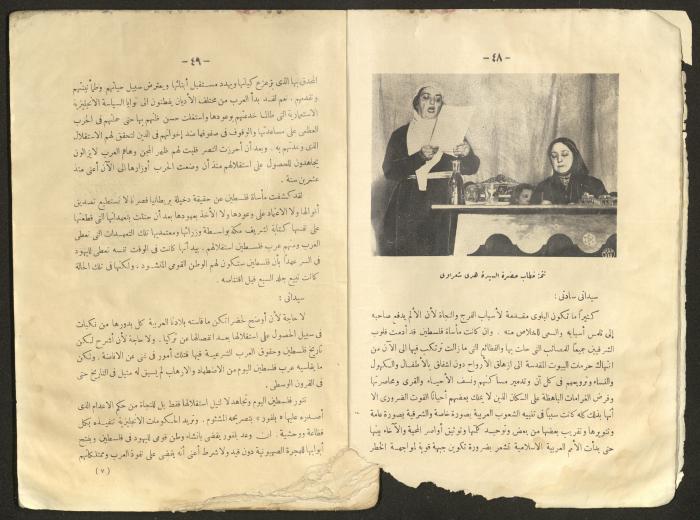 — ٤٨ —
تتمة خطاب حضرة السيدة هدى شعراوى
سيداتى سادتى :
كثيراً ما تكون البلوى مقدمة لأسباب الفرج والنجاة لأن الألم يدفع صاحبه
إلى تلمس أسبابه والسعى للخلاص منه . وان كانت مأساة فلسطين قد أدمت قلوب
الشرقيين جميعاً لمصائب التى حلت بها والفظائع التى ما زالت ترتكب فيها الى الآن من
انتهاك حرمات البيوت المقدسة الى ازهاق الأرواح دون اشفاق بالأطفال والكهول
والنساء وترويعهم فى كل آن وتدمير مساكنهم ونسف الأحياء والقرى ومحاصرتها
وفرض الغرامات الباهظة على السكان الذين لا يملك بعضهم أحياناً القوت الضرورى الا
أنها بذلك كله كانت سبباً فى تنبيه الشعوب العربية بصورة خاصة والشرقية بصورة عامة
وتنويرها وتقريب بعضها من بعض وتوحيد كلمتها وتوثيق أواصر المحبة والآخاء بينها
حتى بدأت الأمم العربية الاسلامية تشعر بضرورة تكوين جبهة قوية لمواجهة الخطر
— ٤٩ —
المحدق بها الذى يزعزع كيانها ويهدد مستقبل أبنائها ويعترض سبيل حياتهم وطمأنينتهم
وتقدمهم . نعم لقد بدأ العرب من مختلف الأديان يفطنون الى نوايا السياسة الانجليزية
الاستعمارية التى طالما خدعتهم بوعودها واستغلت حسن ظنهم بها حتى حملتهم فى الحرب
العظمى على مساعدتها والوقوف فى صفوفها ضد إخوانهم فى الدين لتحقق لهم الاستقلال
الذى وعدتهم به . وبعد أن أحرزت النصر قلبت لهم ظهر المجن وهاهم العرب لايزالون
يجاهدون للحصول على استقلالهم منذ أن وضعت الحرب أوزارها الى الآن أعنى منذ
عشرين سنة .
لقد كشفت مأساة فلسطين عن حقيقة دخيلة بريطانيا فصرنا لا نستطيع تصديق
أقوالها ولا الاعتماد على وعودها ولا الأخذ بعهودها بعد أن حنثت بتعهداتها التى قطعتها
على نفسها كتابة لشريف مكة بواسطة وزرائها ومعتمديها تلك التعهدات التى تعطى
العرب ومنهم عرب فلسطين استقلالهم . بيد أنها كانت فى الوقت نفسه تعطى لليهود
فى السر عهداً بأن فلسطين ستكون لهم الوطن القومى المنشود ، ولكنها فى تلك الحالة
كانت تبيع جلد السبع قبل اقتناصه .
سيداتى :
لا حاجة لأن أوضح لحضراتكم ما قاسته بلادنا العربية كل بدورها من نكبات
فى سبيل الحصول على استقلالها بعد انفصالها عن تركيا . ولا حاجة لأن أشرح لكن
تاريخ فلسطين وحقوق العرب الشرعية فيها فتلك أمور فى غنى عن الافاضة . ولكن
ما يقاسيه عرب فلسطين اليوم من الاضطهاد والارهاب لم يسبق له مثيل فى التاريخ حتى
فى القرون الوسطى .
تثور فلسطين اليوم وتجاهد لا لنيل استقلالها فقط بل للنجاة من حكم الاعدام الذى
أصدره عليها « بلفور » بتصريحه المشئوم . وتريد الحكومات الانجليزية تنفيذه بكل
فظاعة ووحشية . ان وعد بلفور يقضى بانشاء وطن قومى لليهود فى فلسطين وبفتح
أبوابها للهجرة الصهيونية دون قيد ولا شرط أعنى أنه يقضى على نفوذ العرب وممتلكاتهم
(٧)